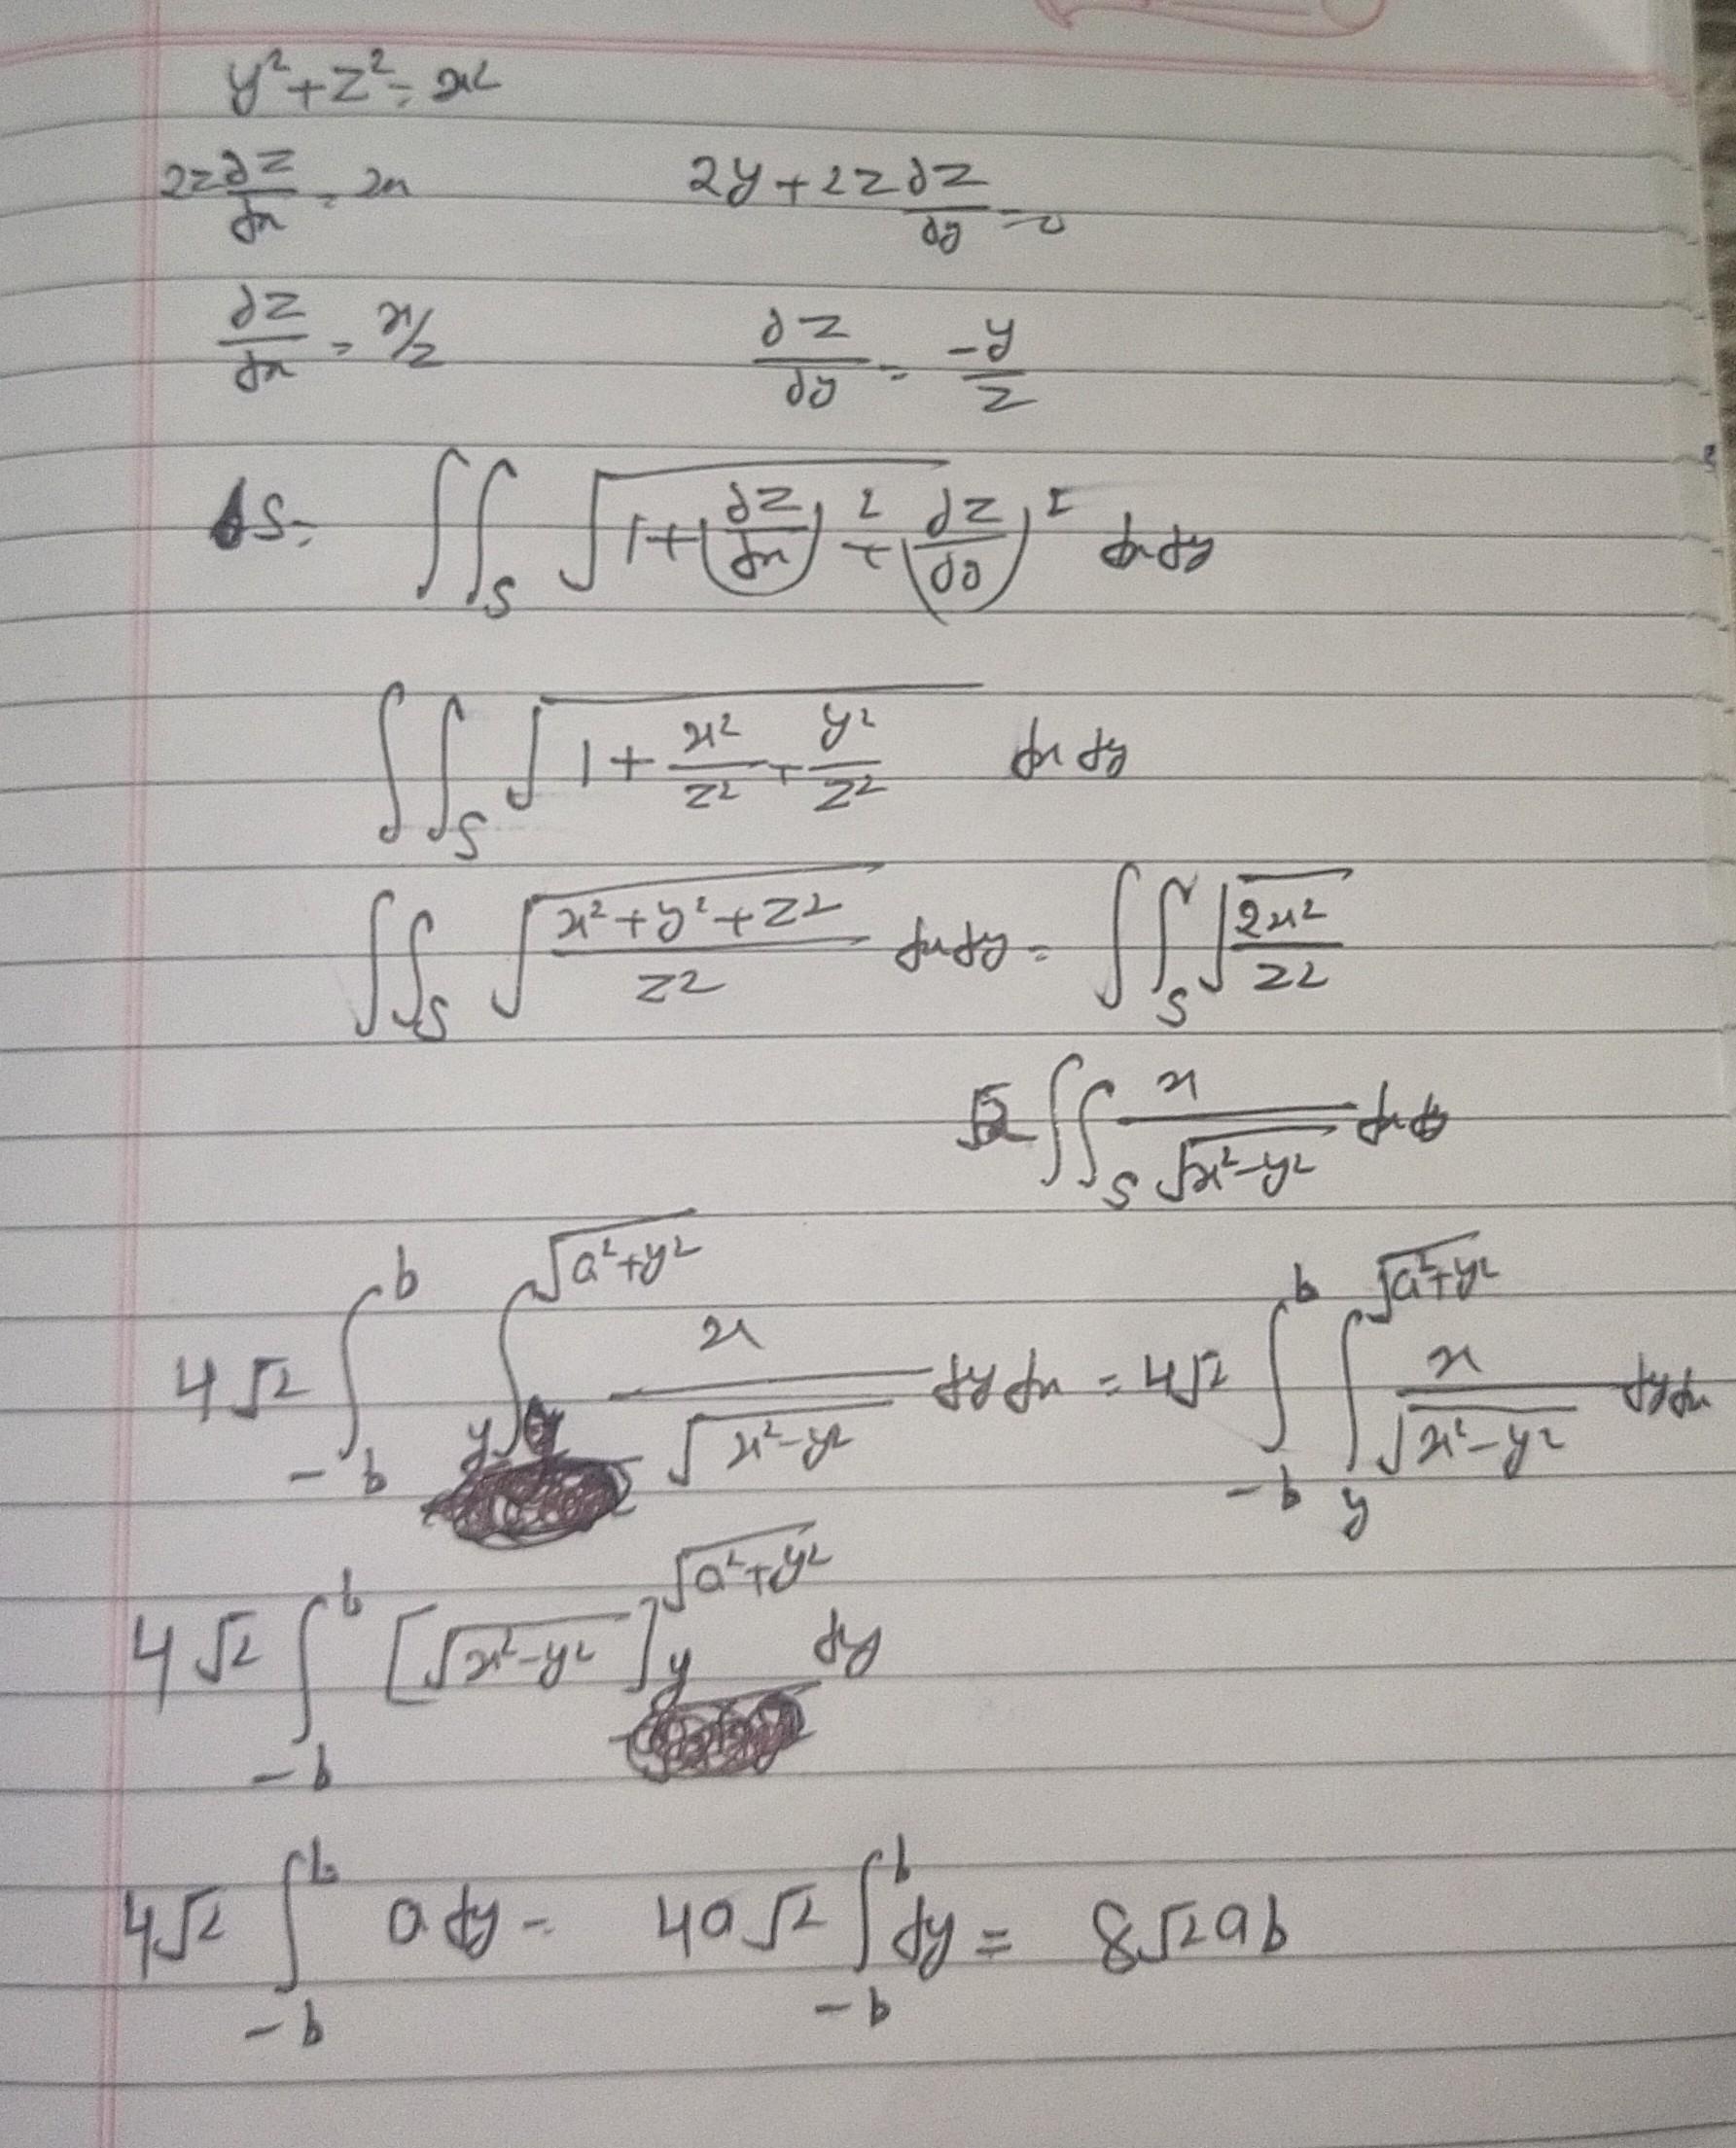 y² + z² = x²
2z ∂z/∂x = 2x    2y + 2z ∂z/∂y = 0
∂z/∂x = x/z    ∂z/∂y = -y/z
S = ∬_S √(1 + (∂z/∂x)² + (∂z/∂y)²) dx dy
∬_S √(1 + x²/z² + y²/z²) dx dy
∬_S √((x² + y² + z²)/z²) dx dy = ∬_S √(2x²/z²)
√2 ∬_S x/√(x² - y²) dx dy
4√2 ∫_{-b}^{b} ∫_{y}^{√(a² + y²)} x/√(x² - y²) dy dx = 4√2 ∫_{-b}^{b} ∫_{y}^{√(a² + y²)} x/√(x² - y²) dy dx
4√2 ∫_{-b}^{b} [√(x² - y²)]_{y}^{√(a² + y²)} dy
4√2 ∫_{-b}^{b} a dy = 4a√2 ∫_{-b}^{b} dy = 8√2 ab